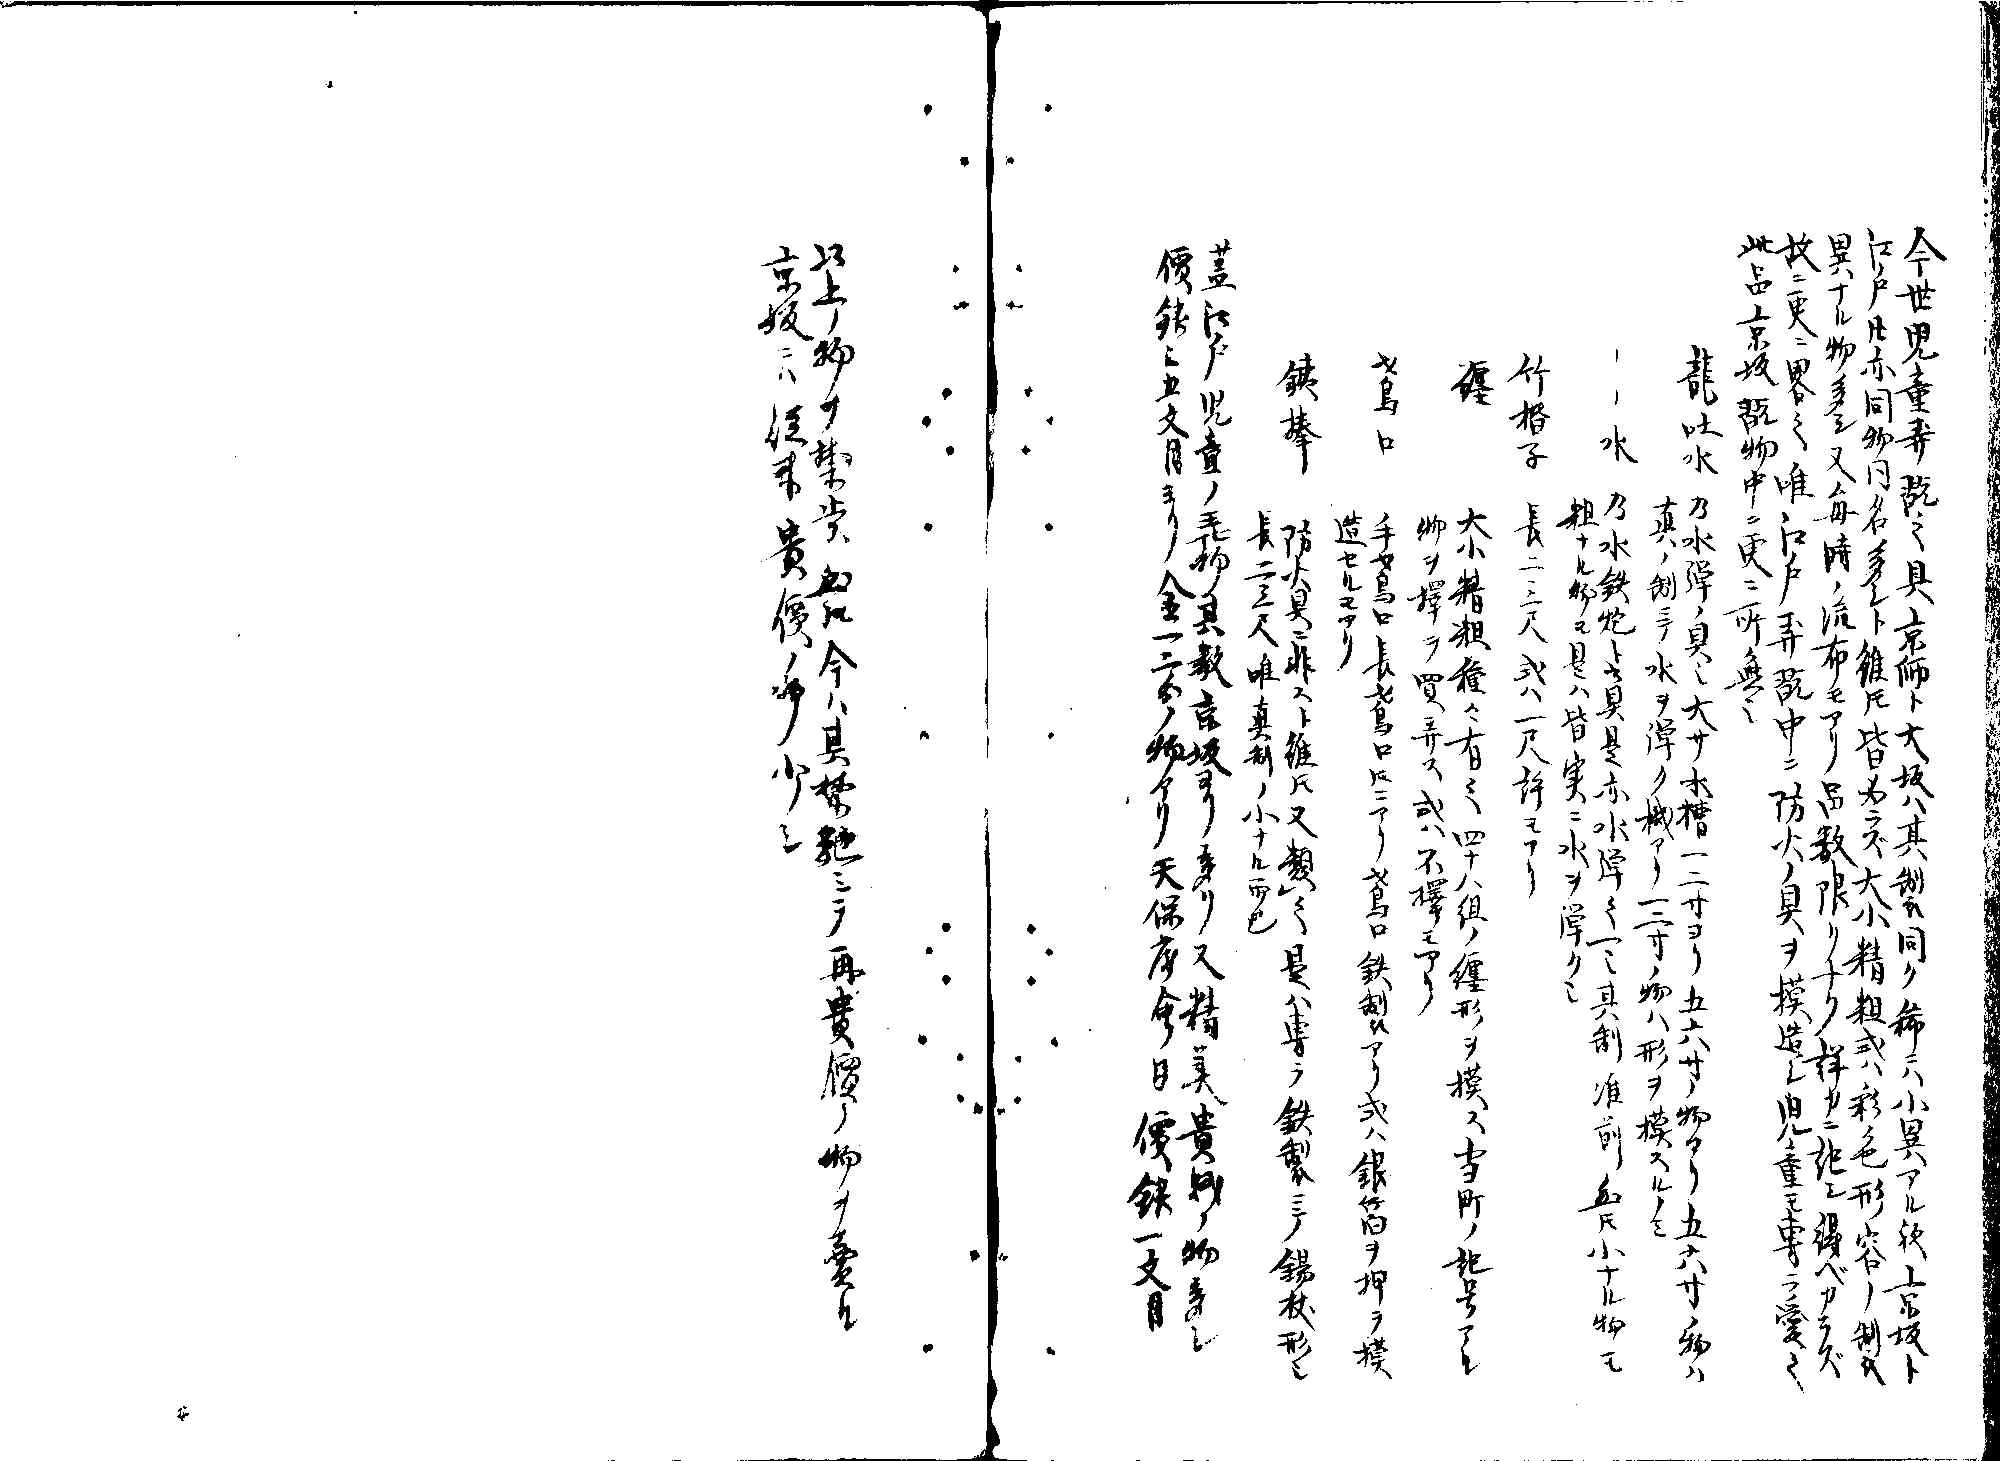 今世児童弄翫之具京師ト大坂ハ其制同ク稀ニハ小異アル歟上京坂ト
江戸ト亦同物同名多シト雖氏皆必ラズ大小精粗或ハ彩色形容ノ制
異ナル物多シ又毎時ノ流布モアリ品数限リナク詳カニ記シ得ベカラズ
故ニ更ニ畧之唯江戸弄翫中ニ防火ノ具ヲ模造シ児童モ専ラ愛之
此品京坂翫物中ニ更ニ所無之
龍吐水 乃水弾ノ具也大サ水槽一二寸ヨリ五六寸ノ物アリ五六寸ノ物ハ
真ノ制ニテ水ヲ弾ク機アリ一二寸ノ物ハ形ヲ模スルノミ
｜｜水 乃水鉄炮ト云具是亦水弾之一也其制准前尓氏小ナル物モ
粗ナル物モ是ハ皆実ニ水ヲ弾ク也
竹楷子 長二三尺或ハ一尺許モアリ
纏 大小精粗種々有之四十八組ノ纏形ヲ模ス吾町ノ記号アル
物ヲ擇ラ買弄ス或ハ不擇モアリ
鳶口 手鳶口長鳶口氏ニアリ鳶口鉄制アリ或ハ銀箔ヲ押ラ模
造セルモアリ
鉄棒 防火具ニ非ズト雖氏又類之是ハ専ラ鉄製ニテ錫杖形也
長二三尺唯真制ノ小ナル而已
蓋江戸児童ノ玩物ノ具数京坂ヨリ多リ又精美貴価ノ物多シ
價銭三五文目ヨリ金一二分ノ物アリ天保府命日價銀一文目
以上ノ物ヲ禁歩尓氏今ハ其禁弛ミテ再貴價ノ物ヲ賣ル
京坂ニハ従来貴價ノ弄少シ